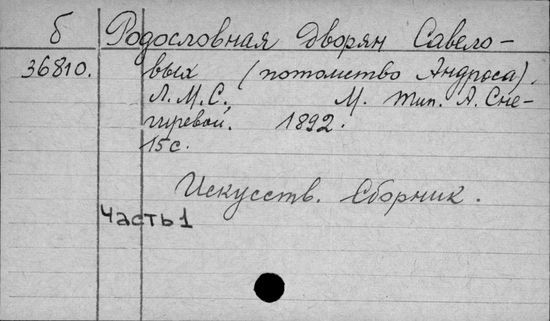 б Родословная Дворян Савело-
36810. вых (потомство Андроса).
Л.М.С. М. Тип. А. Сне-
гиревой. 1892.
15 с.
Искусств. Сборник.
Часть 1